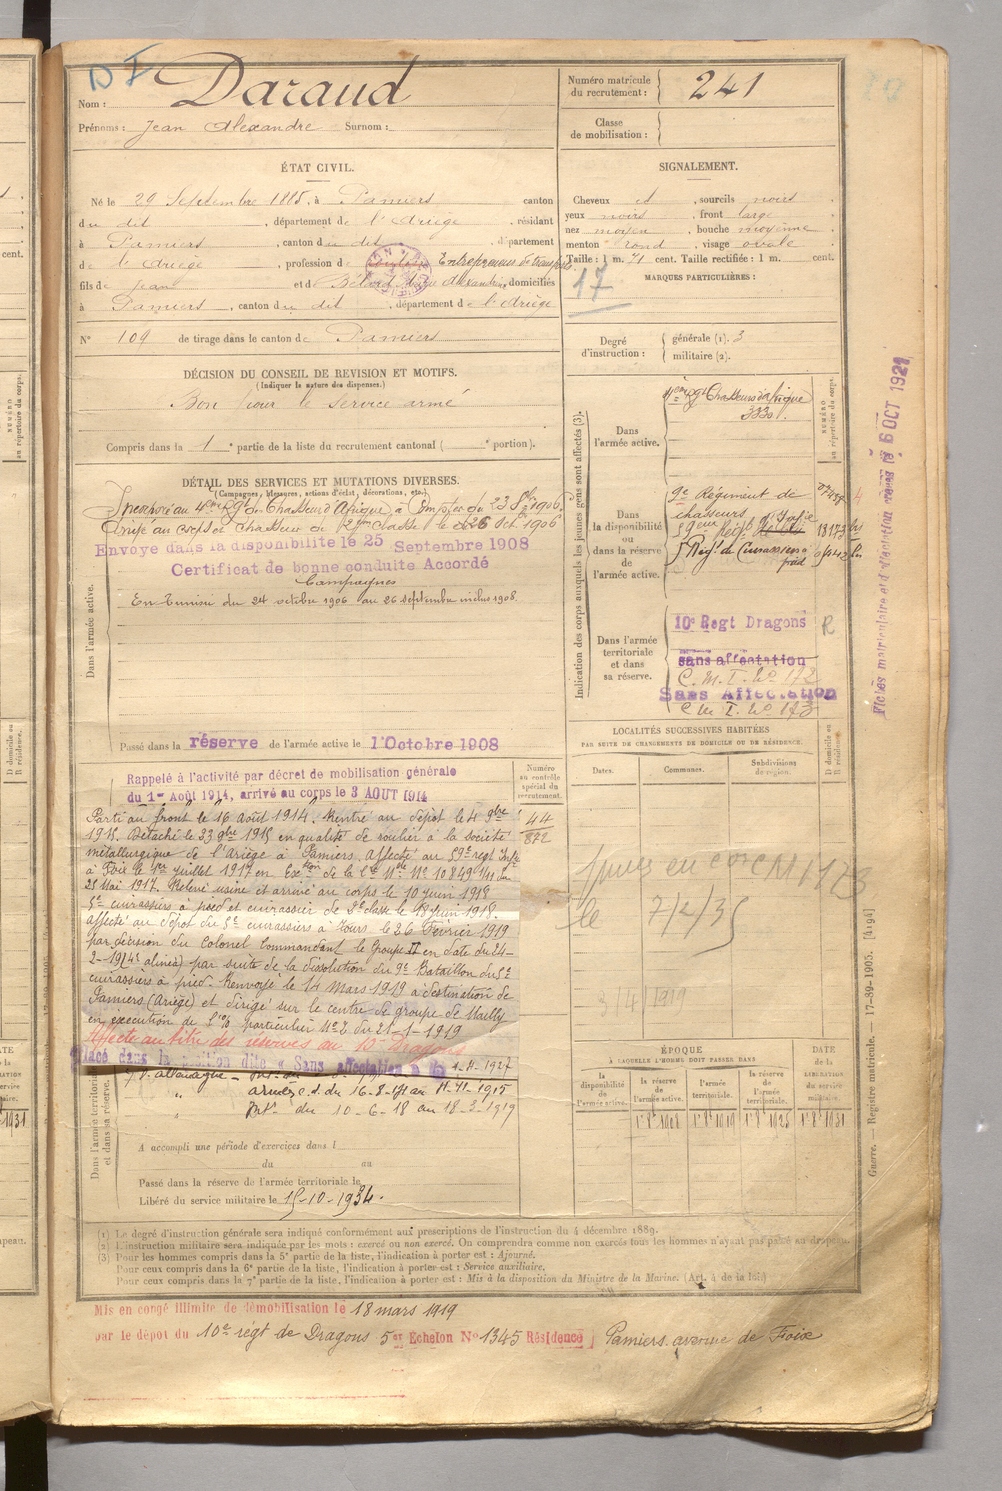 D F
Nom : Daraud
Prénoms : Jean Alexandre Surnom :
Numéro matricule du recrutement : 241
Classe de mobilisation :
ÉTAT CIVIL.
Né le 29 Septembre 1885, à Pamiers canton
du dit , département de l'Ariège , résidant
à Pamiers , canton du dit , département
de l'Ariège , profession de Entrepreneur de transports
fils de Jean et de Alexandrine, domiciliés
à Pamiers , canton du dit , département de l'Ariège
N° 109 de tirage dans le canton de Pamiers
DÉCISION DU CONSEIL DE REVISION ET MOTIFS.
(Indiquer la nature des dispenses.)
Bon pour le service armé
Compris dans la 1e partie de la liste du recrutement cantonal ( e portion).
SIGNALEMENT.
Cheveux et , sourcils noirs
yeux noirs , front large
nez moyen , bouche moyenne
menton rond , visage ovale
Taille : 1 m. 71 cent. Taille rectifiée : 1 m. cent.
MARQUES PARTICULIÈRES :
17
Degré d'instruction : générale (1). 3
militaire (2).
DÉTAIL DES SERVICES ET MUTATIONS DIVERSES.
(Campagnes, blessures, actions d'éclat, décorations, etc.)
Dans l'armée active.
Incorporé au 4eme Rgt de Chasseurs d'Afrique, à compter du 23 8bre 1906
Arrivé au corps et chasseur de 2eme classe le 26 oct. 1906
Envoyé dans la disponibilité le 25 Septembre 1908
Certificat de bonne conduite Accordé
Campagnes
En Tunisie du 24 octobre 1906 au 26 septembre inclus 1908
Passé dans la réserve de l'armée active le 1 Octobre 1908
Indication des corps auxquels les jeunes gens sont affectés (3).
NUMÉRO au répertoire du corps.
Dans l'armée active.
4eme Rgt Chasseurs d'Afrique
3330.
Dans la disponibilité ou dans la réserve de l'armée active.
9e Régiment de
chasseurs
59eme Régt d'Infie 18173
5 Régt de Cuirassiers à
pied
Dans l'armée territoriale et dans sa réserve.
10e Regt Dragons R
sans affectation
C. M. I. No 172
Sans Affectation
C M I. No 173
Fiches matriculaire et d'affectation créées le 6 OCT 1921
LOCALITÉS SUCCESSIVES HABITÉES
PAR SUITE DE CHANGEMENTS DE DOMICILE OU DE RÉSIDENCE.
Dates. Communes. Subdivisions de région. D domicile ou R résidence.
le 7/2/35
3/4/1919
Rappelé à l'activité par décret de mobilisation générale
du 1er Août 1914, arrivé au corps le 3 AOUT 1914
Numéro au contrôle spécial du recrutement.
44
872
Parti au front le 16 août 1914. Rentré au dépôt le 4 9bre
1915. Détaché le 23 9bre 1915 en qualité de à la société
métallurgique de l'Ariège à Pamiers. Affecté au 59e regt Infie
à Foix le 1er juillet 1917 en Exon de la Cre Mle No 10849 du
25 Mai 1917. Relevé usine et arrivé au corps le 10 juin 1918
5e cuirassiers à pied et cuirassier de 2e classe le 18 juin 1918.
affecté au dépôt du 5e cuirassiers à Tours le 26 Février 1919
par décision du Colonel Commandant le Groupe II en date du 24-
2-19 (4e alinéa) par suite de la dissolution du 9e Bataillon du 5e
cuirassiers à pied. Renvoyé le 14 Mars 1919 à destination de
Pamiers (Ariège) et dirigé sur le centre de groupe de Mailly
en exécution de particulier No 2 du 21-1-1919
Affecté au titre des réserves au 10e Dragons
Placé dans la position dite " Sans affectation " 1-11-1927
Dans l'armée territoriale et dans sa réserve.
C. allemagne
armées c.d. du 16-8-14 au 11-1915
Int. du 10-6-18 au 18-3-1919
A accompli une période d'exercices dans l
du au
Passé dans la réserve de l'armée territoriale le
Libéré du service militaire le 15-10-1934.
ÉPOQUE
À LAQUELLE L'HOMME DOIT PASSER DANS
DATE de la LIBÉRATION du service militaire.
la disponibilité de l'armée active. la réserve de l'armée active. l'armée territoriale. la réserve de l'armée territoriale.
1er 8bre 1908 1er 8bre 1919 1er 8bre 1925 1er 8bre 1931
Guerre. — Registre matricule. — 17-89-1905. [4194]
(1) Le degré d'instruction générale sera indiqué conformément aux prescriptions de l'instruction du 4 décembre 1889.
(2) L'instruction militaire sera indiquée par les mots : exercé ou non exercé. On comprendra comme non exercés tous les hommes n'ayant pas passé au drapeau.
(3) Pour les hommes compris dans la 5e partie de la liste, l'indication à porter est : Ajourné.
Pour ceux compris dans la 6e partie de la liste, l'indication à porter est : Service auxiliaire.
Pour ceux compris dans la 7e partie de la liste, l'indication à porter est : Mis à la disposition du Ministre de la Marine. (Art. 4 de la loi.)
Mis en congé illimité de démobilisation le 18 mars 1919
par le dépot du 10e régt de Dragons 5e Echelon No 1345 Résidence Pamiers avenue de Foix